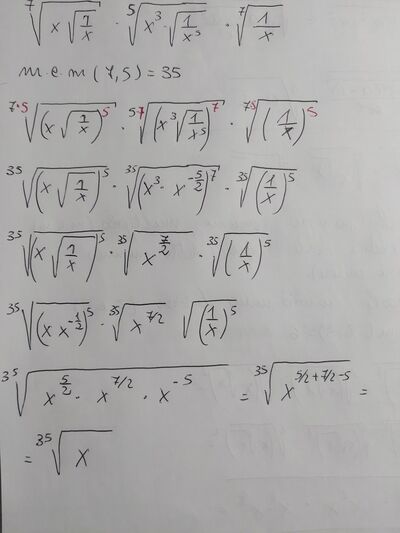 ⁷√(x√(1/x)) · ⁵√(x³·√(1/x⁵)) · ⁷√(1/x)
m.c.m(7,5) = 35
⁷·⁵√((x√(1/x))⁵) · ⁵·⁷√((x³√(1/x⁵))⁷) · ⁷·⁵√((1/x)⁵)
³⁵√((x√(1/x))⁵) · ³⁵√((x³·x^(-5/2))⁷) · ³⁵√((1/x)⁵)
³⁵√((x√(1/x))⁵) · ³⁵√(x^(7/2)) · ³⁵√((1/x)⁵)
³⁵√((x x^(-1/2))⁵) · ³⁵√(x^(7/2)) √((1/x)⁵)
³⁵√(x^(5/2) · x^(7/2) · x^(-5)) = ³⁵√(x^(5/2+7/2-5)) =
= ³⁵√(x)